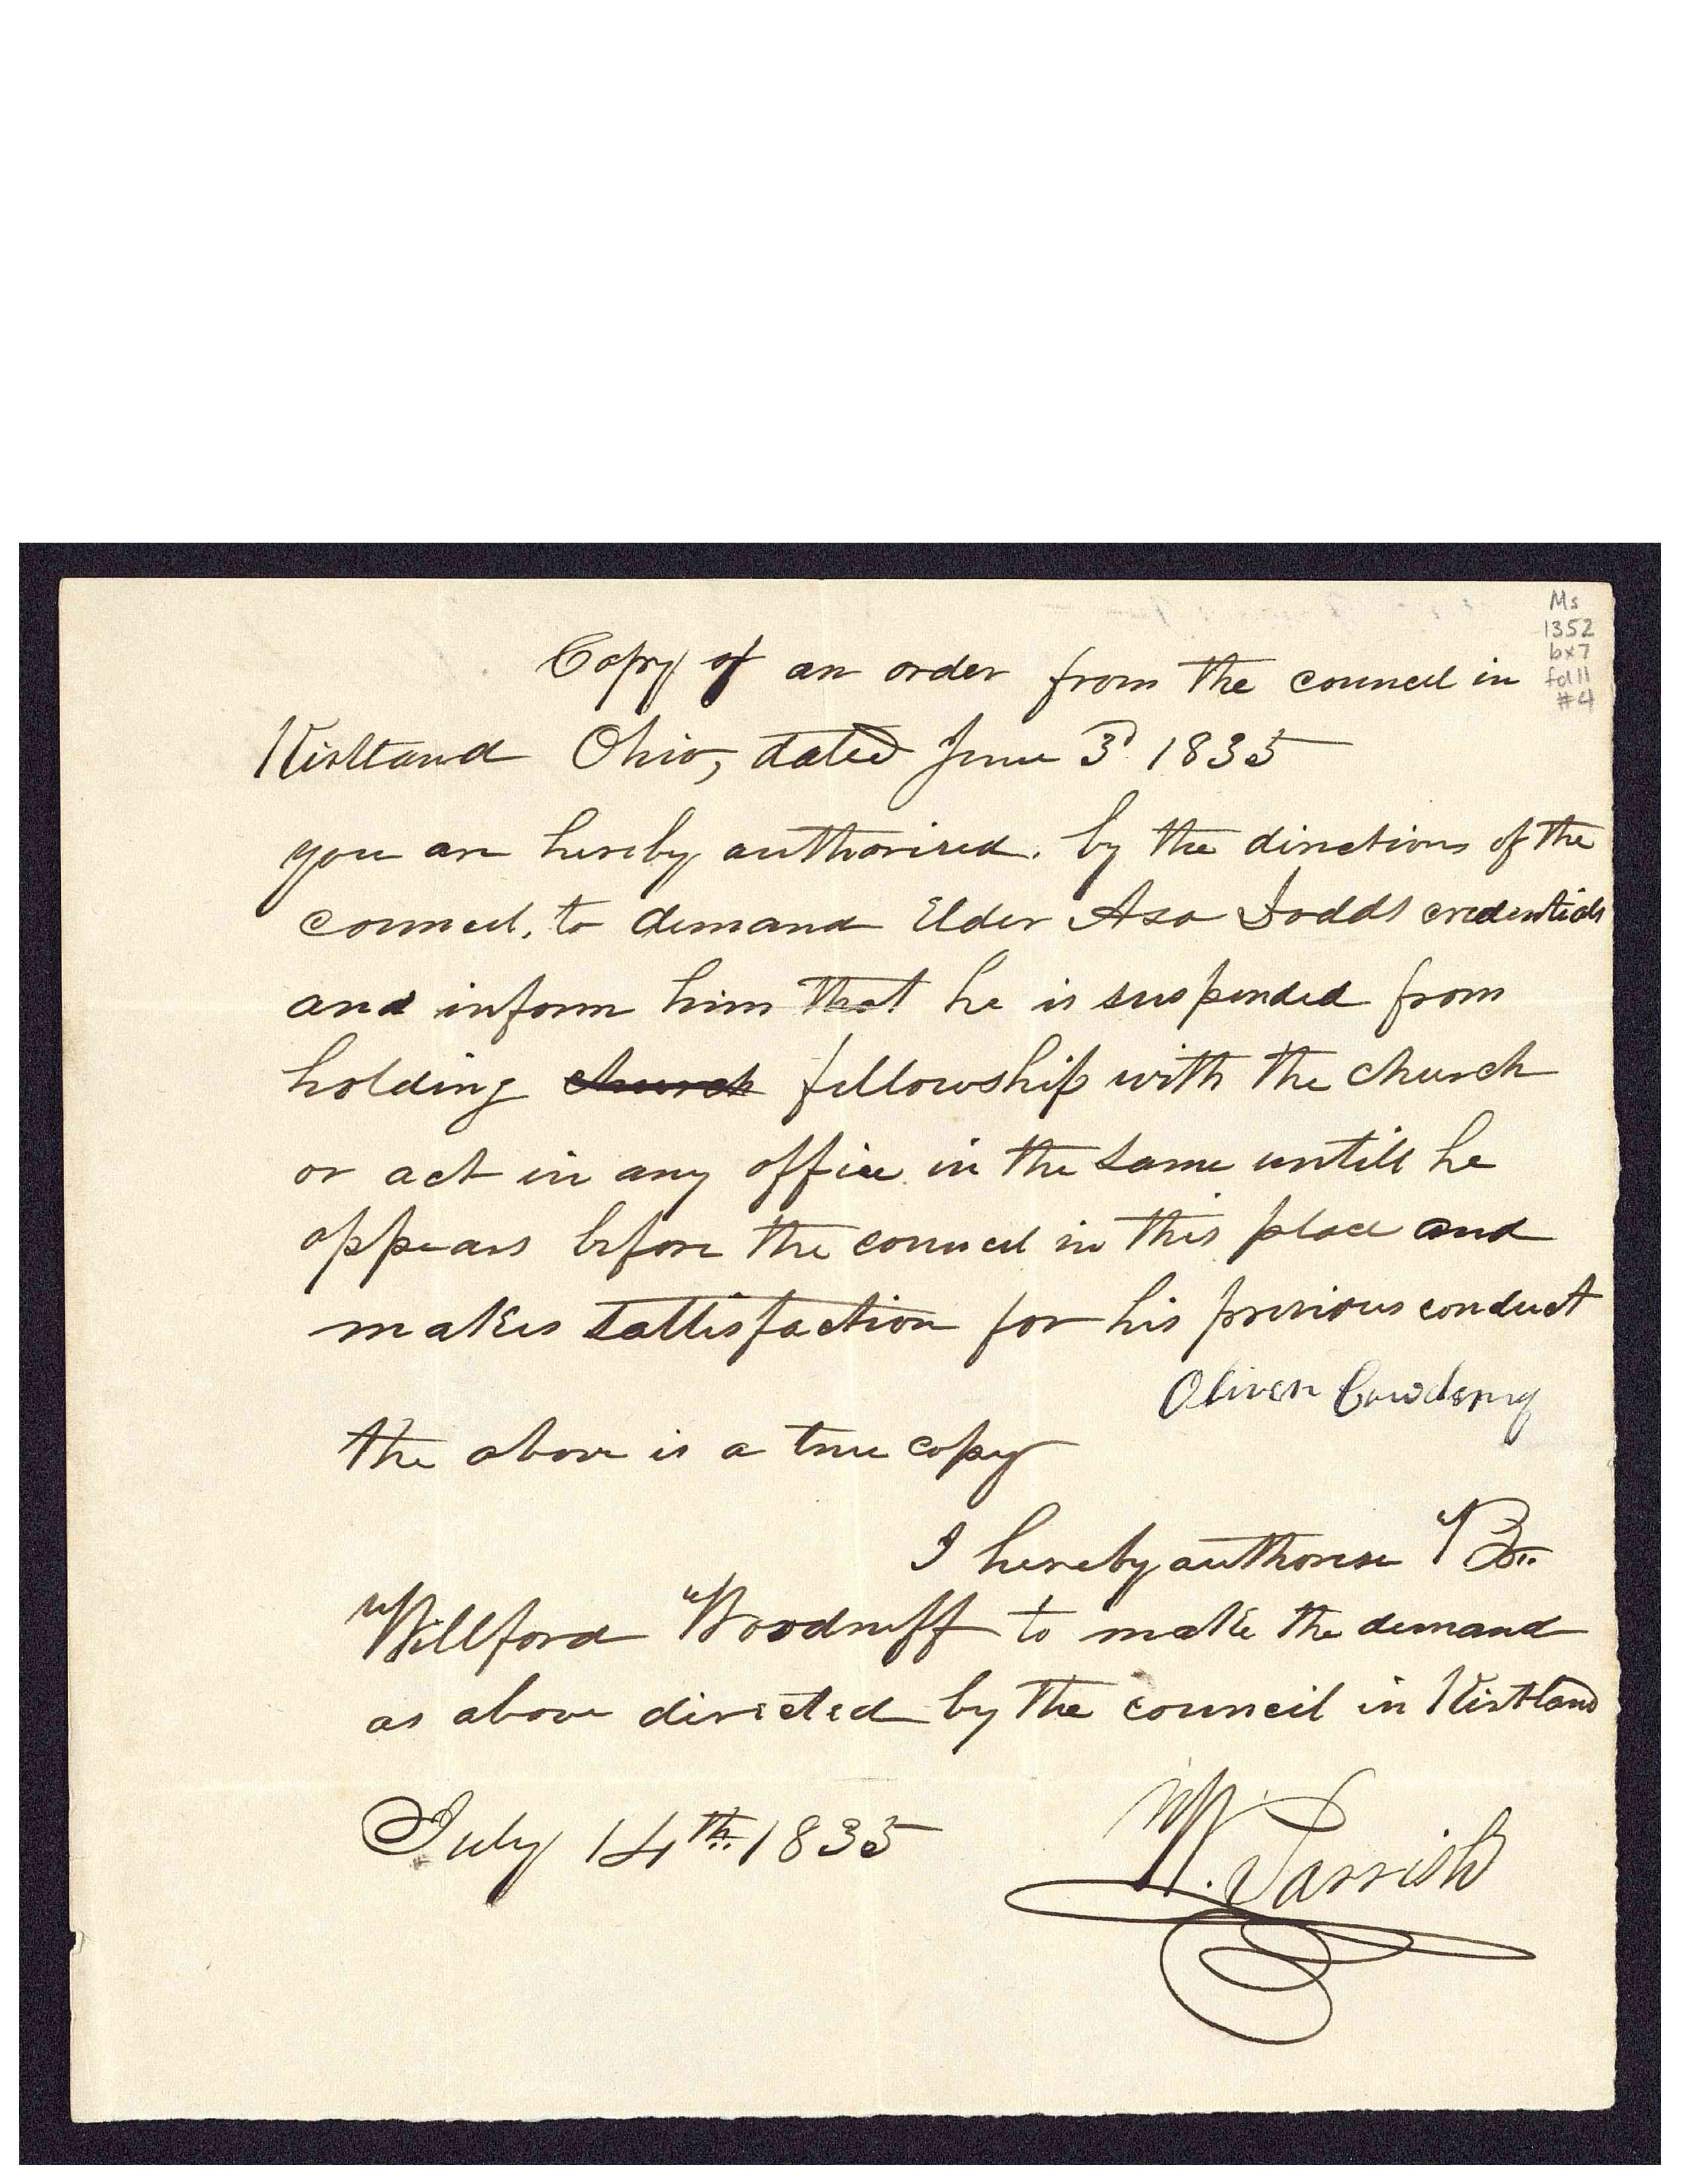 Ms
1352
bx7
fd 11
#4
Copy of an order from the council in
Kirtland Ohio, dated June 3d 1835
you are hereby authorised. by the directions of the
council, to demand Elder Asa Dodds credentials
and inform him that he is suspended from
holding church fellowship with the church
or act in any office in the same untill he
appears before the council in this place and
makes sattisfaction for his previous conduct
Oliver Cowdery
the above is a true copy
I hereby authorise Br.
Willford Woodruff to make the demand
as above directed by the council in Kirtland
July 14th. 1835
W. Parrish